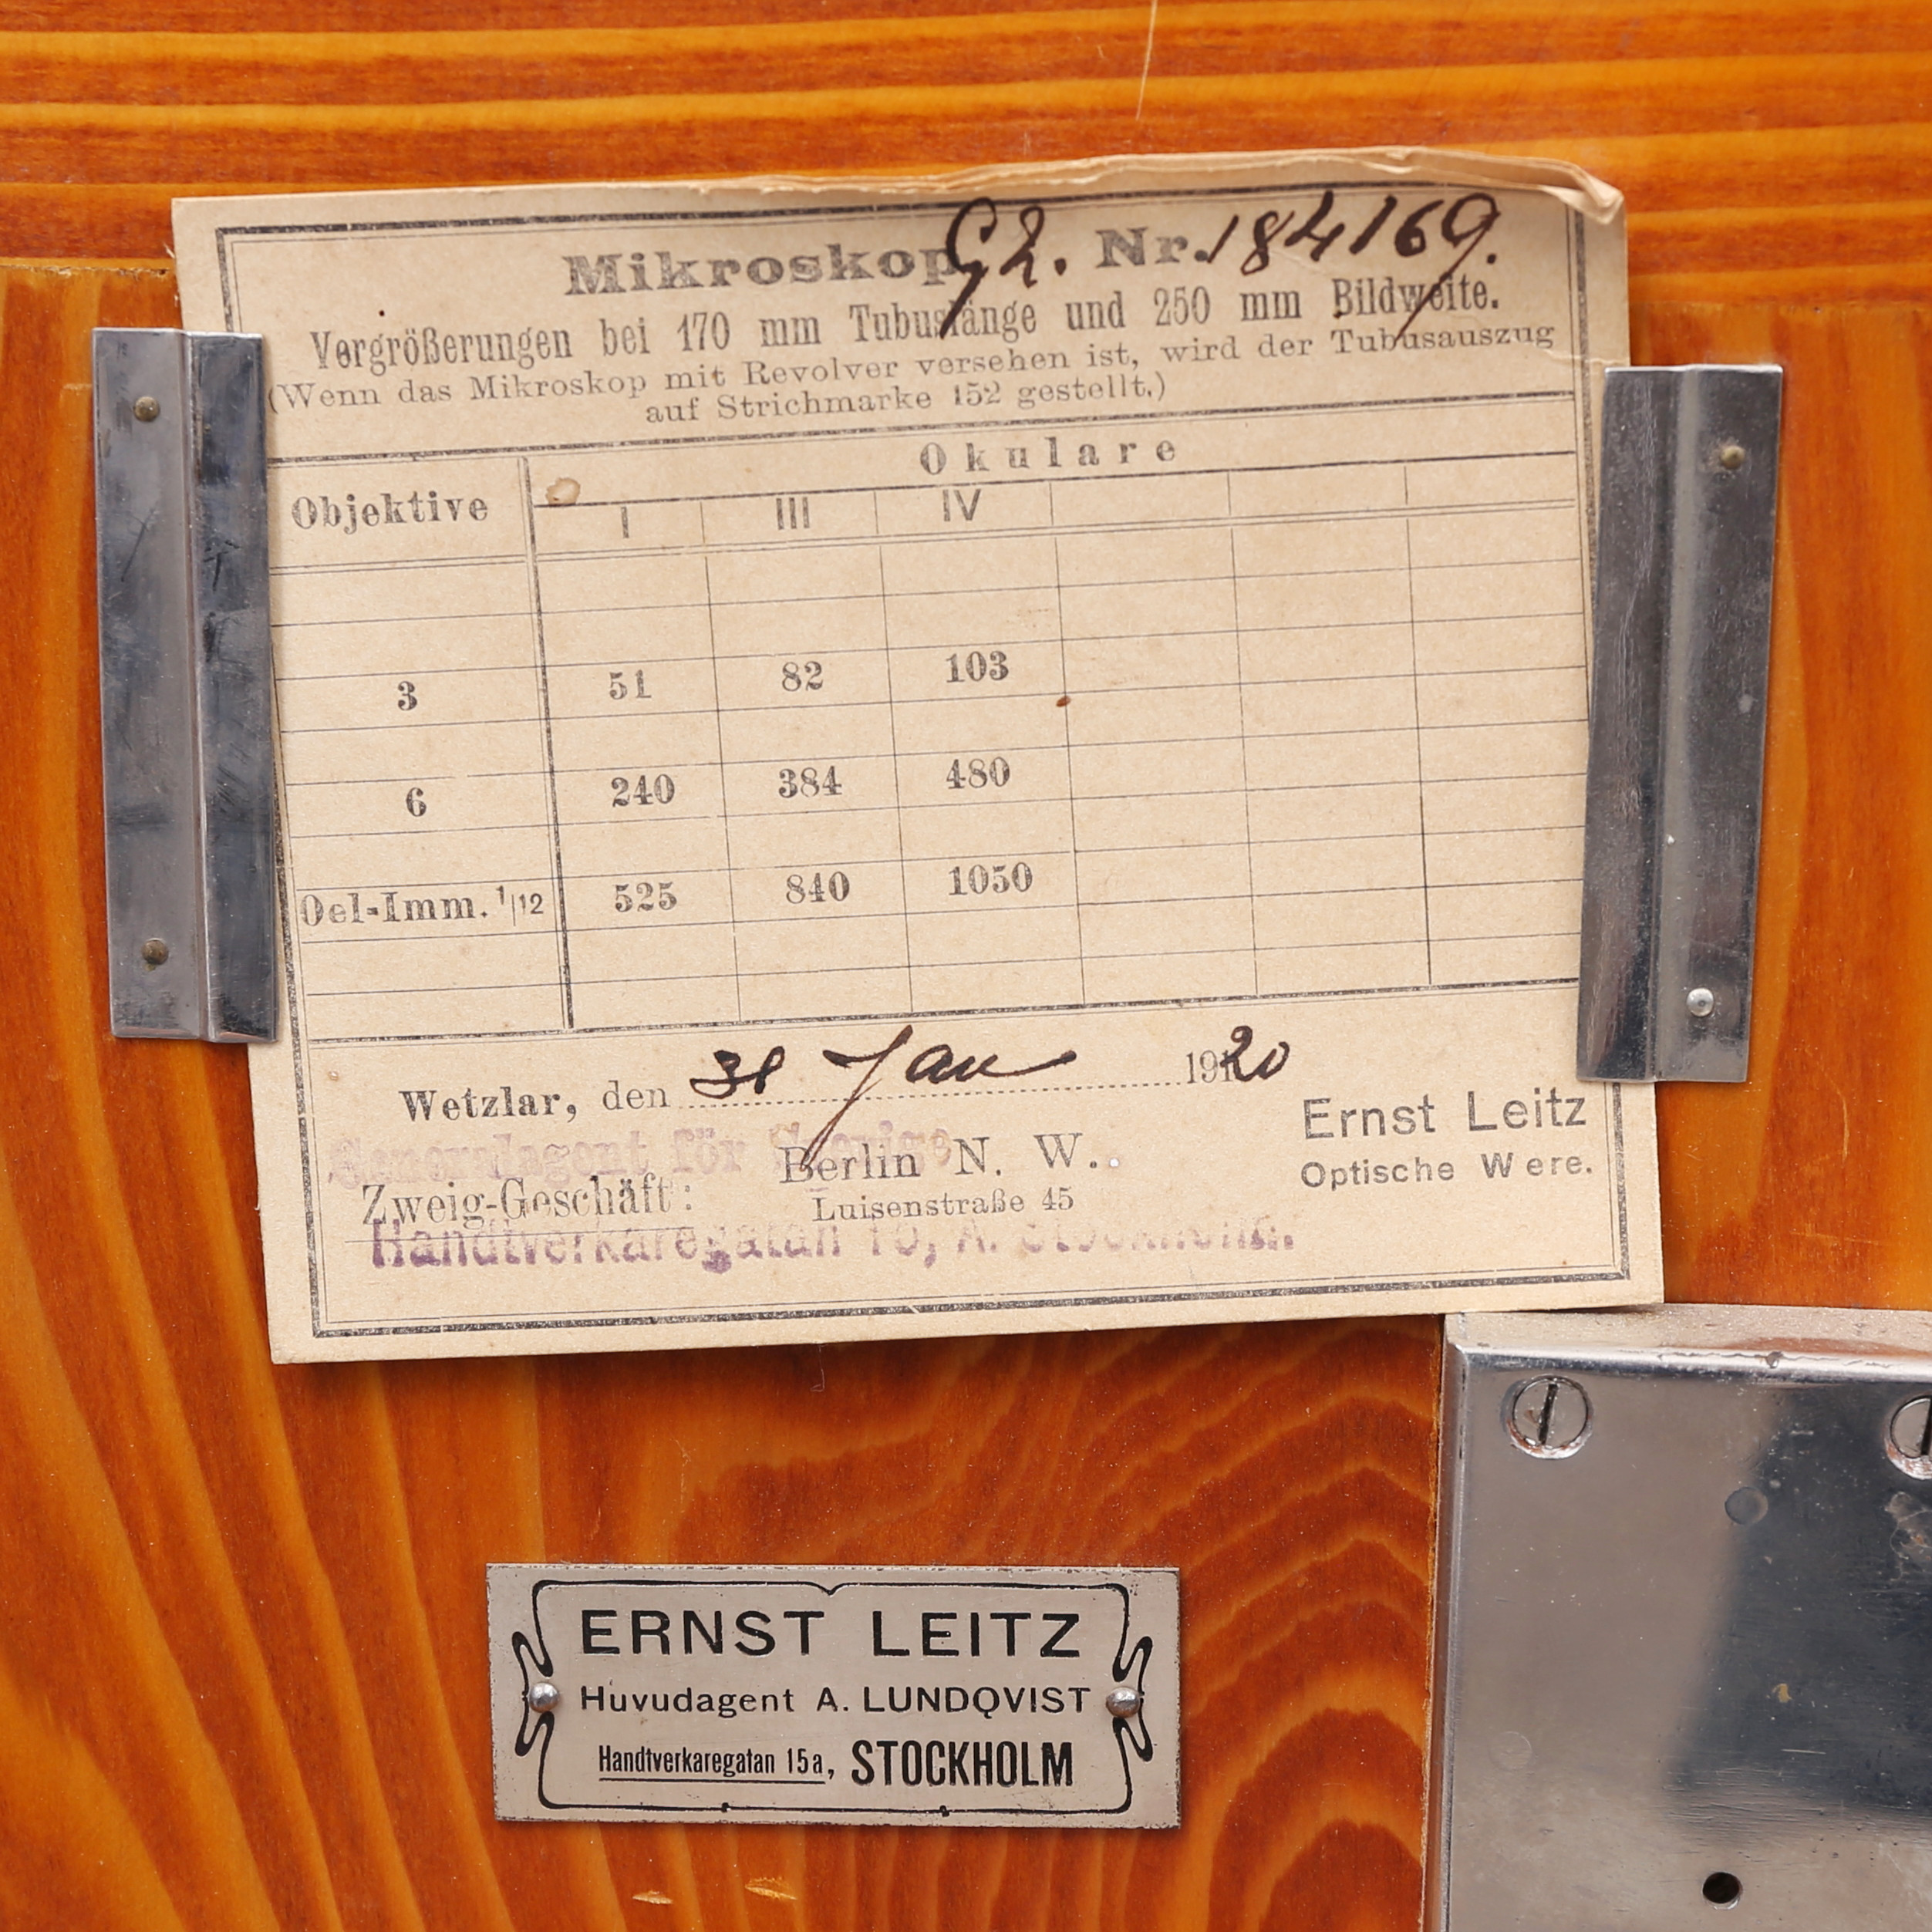 Mikroskop G2. Nr. 184169.
Vergrößerungen bei 170 mm Tubuslänge und 250 mm Bildweite.
(Wenn das Mikroskop mit Revolver versehen ist, wird der Tubusauszug
auf Strichmarke 152 gestellt.)
Okulare
Objektive I III IV
3 51 82 103
6 240 384 480
Oel-Imm. 1/12 525 840 1050
Wetzlar, den 31 Jan 1920
Ernst Leitz
Generalagent för Sverige
Berlin N. W.
Optische Were.
Zweig-Geschäft:
Luisenstraße 45
Handtverkaregatan A. Stockholm.
ERNST LEITZ
Huvudagent A. LUNDQVIST
Handtverkaregatan 15a, STOCKHOLM